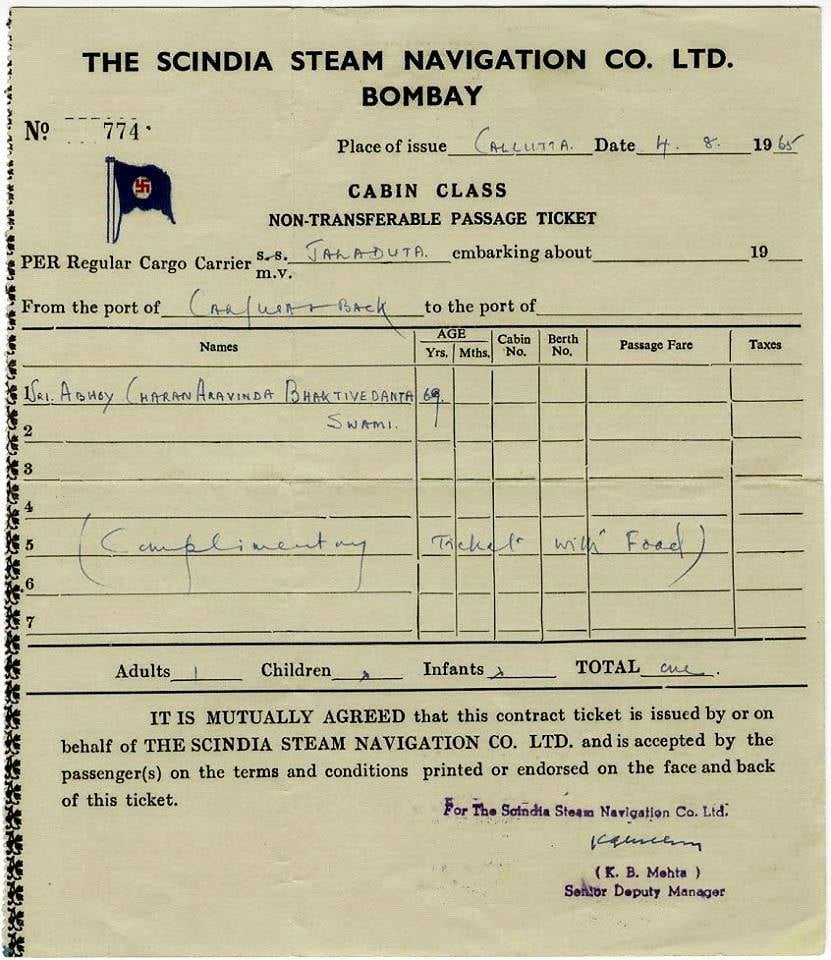 THE SCINDIA STEAM NAVIGATION CO. LTD.
BOMBAY
Nº 774
Place of issue CALCUTTA. Date 4. 8. 1965
CABIN CLASS
NON-TRANSFERABLE PASSAGE TICKET
PER Regular Cargo Carrier s.s. m.v. JALADUTA. embarking about 19
From the port of & BACK to the port of
Names AGE Yrs. Mths. Cabin No. Berth No. Passage Fare Taxes
1 SRI. ABHOY CHARAN ARAVINDA BHAKTIVEDANTA 69.
2 SWAMI.
3
4
5 (Complimentary Ticket with Food)
6
7
Adults 1 Children Infants TOTAL one.
IT IS MUTUALLY AGREED that this contract ticket is issued by or on
behalf of THE SCINDIA STEAM NAVIGATION CO. LTD. and is accepted by the
passenger(s) on the terms and conditions printed or endorsed on the face and back
of this ticket.
For The Scindia Steam Navigation Co. Ltd.
( K. B. Mehta )
Senior Deputy Manager